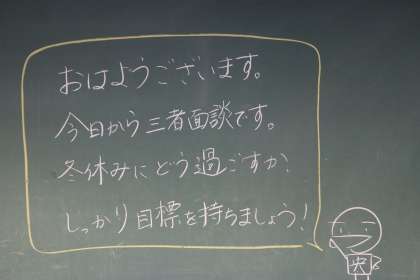 おはようございます。
今日から三者面談です。
冬休みにどう過ごすか、
しっかり目標を持ちましょう!